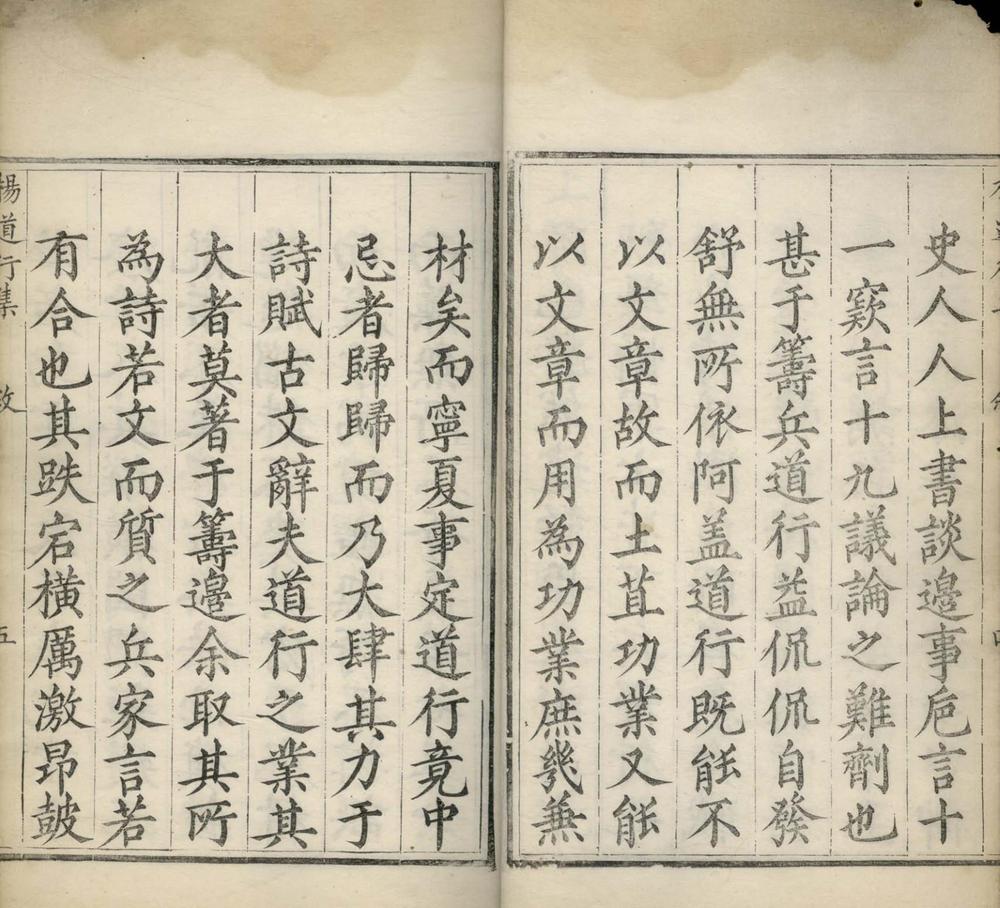 史人人上書談邊事巵言十
一窾言十九議論之難劑也
甚于籌兵道行益侃侃自發
舒無所依阿盖道行既能不
以文章故而土苴功業又能
以文章而用為功業庶幾兼
材矣而寧夏事定道行竟中
忌者歸歸而乃大肆其力于
詩賦古文辭夫道行之業其
大者莫著于籌邊余取其所
為詩若文而質之兵家言若
有合也其跌宕橫厲激昂皷
楊道行集 五